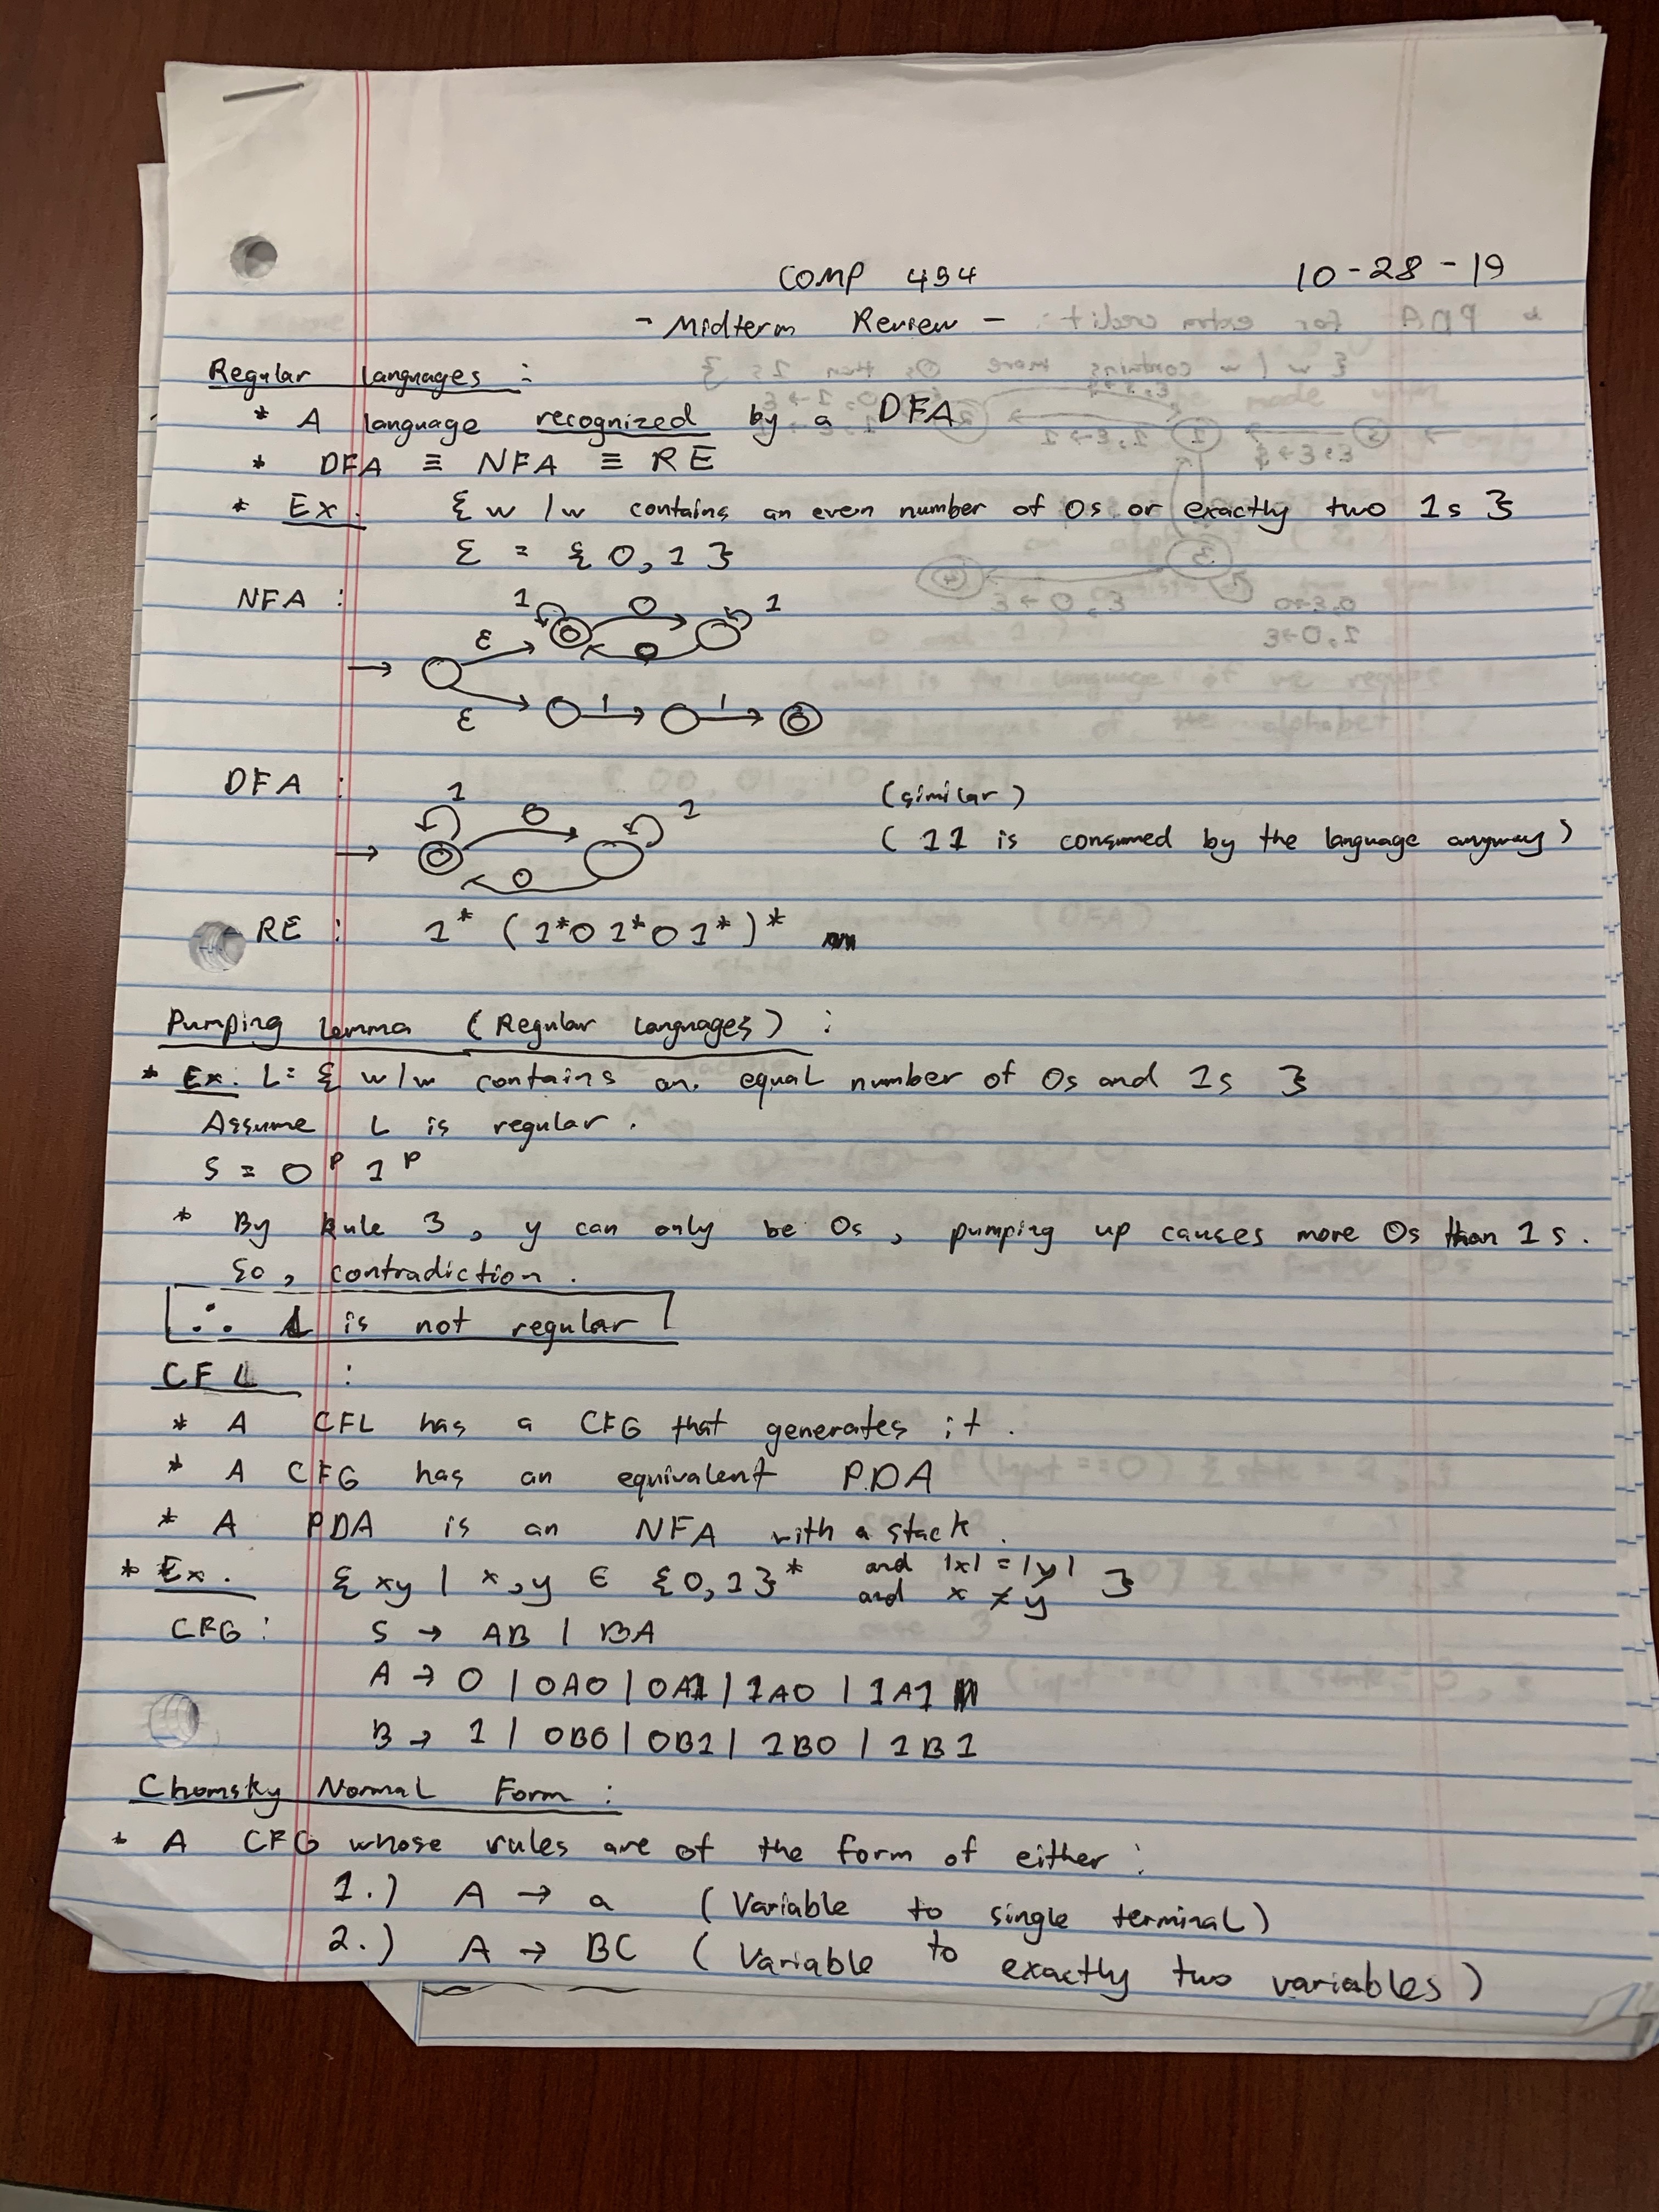 COMP 454 10-28-19
- Midterm Review -
Regular Languages :
* A language recognized by a DFA
* DFA ≡ NFA ≡ RE
* Ex. { w | w contains an even number of 0s or exactly two 1s }
Σ = { 0, 1 }
NFA :
1 0 1
ε 0
ε 1 1
DFA :
1 0 1 (similar)
0 (11 is consumed by the language anyway)
RE : 1* (1*01*01*)*
Pumping Lemma (Regular Languages) :
* Ex. L = { w | w contains an equal number of 0s and 1s }
Assume L is regular.
S = 0^P 1^P
* By Rule 3, y can only be 0s, pumping up causes more 0s than 1s.
So, contradiction.
∴ L is not regular
CFL :
* A CFL has a CFG that generates it.
* A CFG has an equivalent PDA
* A PDA is an NFA with a stack.
* Ex. { xy | x, y ∈ {0,1}* and |x| = |y| and x ≠ y }
CFG : S → AB | BA
A → 0 | 0A0 | 0A1 | 1A0 | 1A1
B → 1 | 0B0 | 0B1 | 1B0 | 1B1
Chomsky Normal Form :
* A CFG whose rules are of the form of either :
1.) A → a (Variable to single terminal)
2.) A → BC (Variable to exactly two variables)